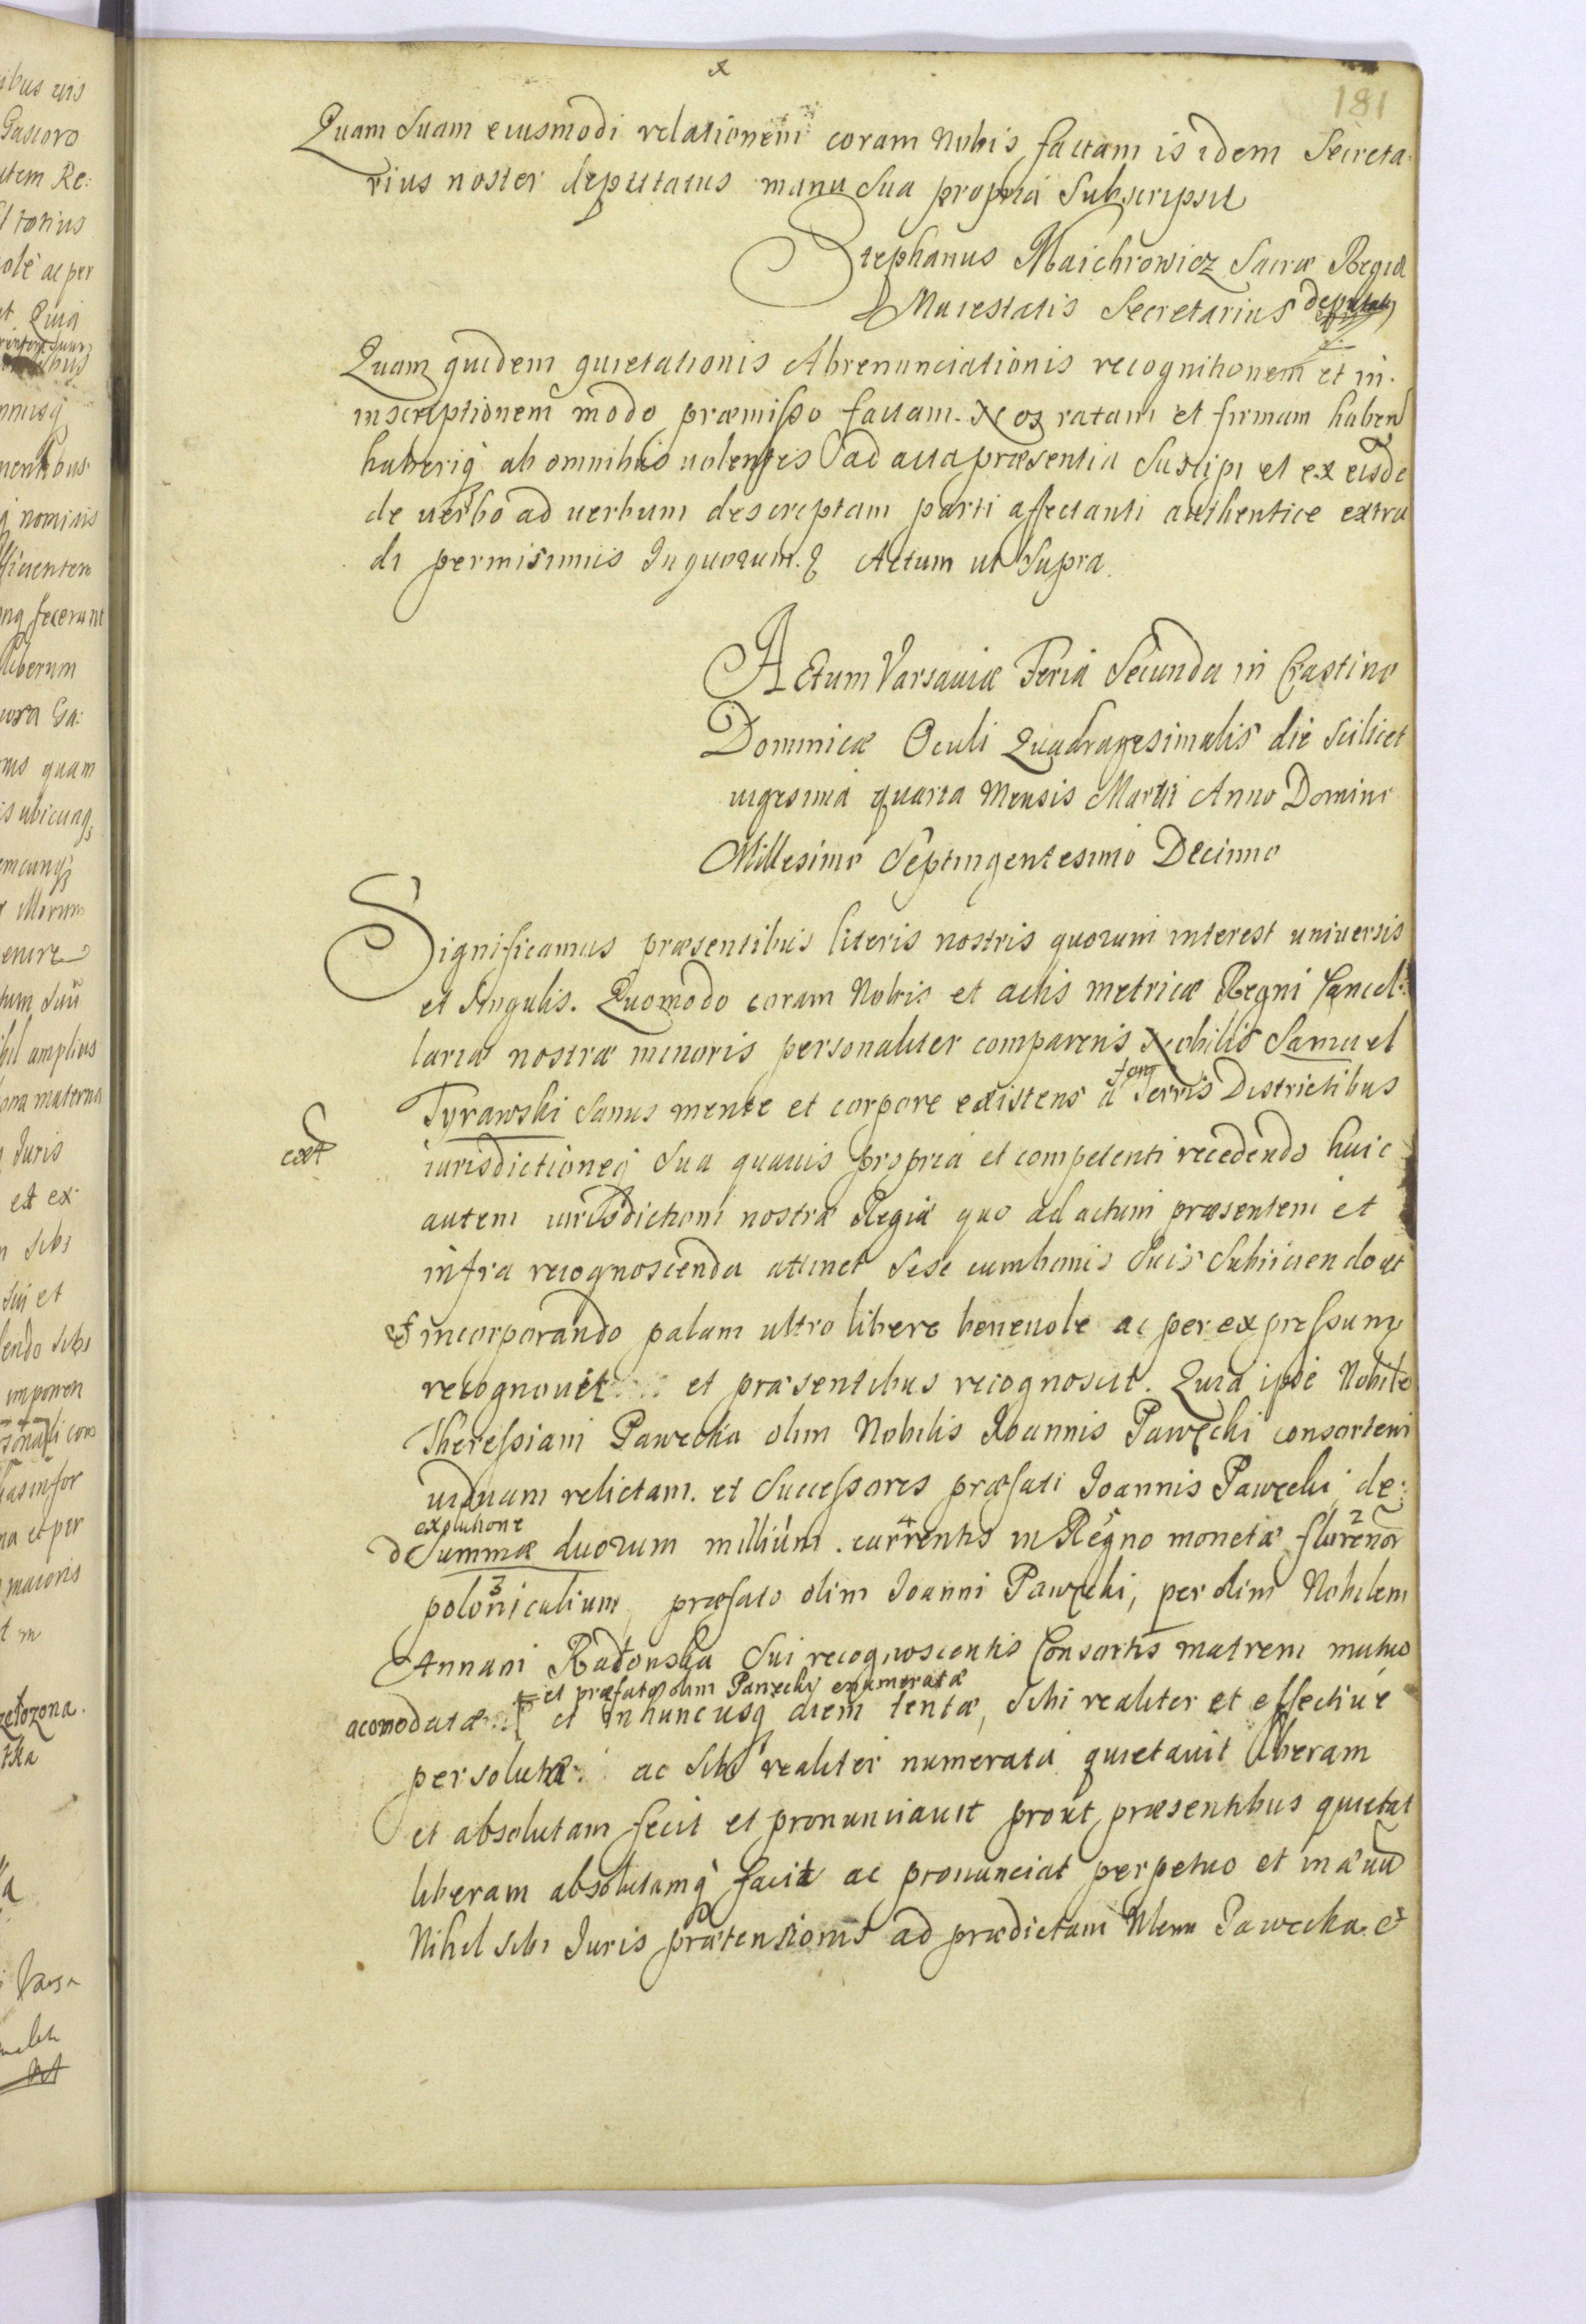 181
Quam Suam eiusmodi relationem coram Nobis factam is idem Secreta:
rius noster deputatus manu Sua propria Subscripsit
Stephanus Maichrowicz Sacræ Regiæ
Maiestatis Secretarius
Quam quidem quietationis Abrenunciationis recognitionem et in.
inscriptionem modo præmisso factam. Nos ratam et firmam haben
haberiq ab omnibus uolentes ad acta præsentia Suscipi et ex eisde
de uerbo ad uerbum descriptam parti affectanti authentice extra
di permisimus Inquorum. Actum ut Supra.
Actum Varsauiæ Feria Secunda in Crastino
Dominicæ Oculi Quadragesimalis die Scilicet
uigesima quarta Mensis Martii Anno Domini
Millesimo Septingentesimo Decimo
Significamus præsentibus literis nostris quorum interest uniuersis
et Singulis. Quomodo coram Nobis et actis metricæ Regni Cancel:
lariæ nostræ minoris personaliter comparens Nobilis Samuel
Tyrawski Sanus mente et corpore existens a Terris Districtibus
iurisdictioneq Sua quauis propria et competenti recedendo huic
autem iurisdictioni nostræ Regiæ quo ad actum præsentem et
infra recognoscenda attinet Sese cum bonis Suis Subiiciendo et
et incorporando palam ultro libere beneuole ac per expressum
recognouit et præsentibus recognoscit. Quia ipse Nobile
Theressiam Pawęcka olim Nobilis Joannis Pawęcki consortem
uiduam relictam. et Successores præfati Joannis Pawęcki de:
exolutione
de Summæ duorum millium 4 currentis in Regno monetæ 2 florenor
3 polonicalium præfato olim Joanni Pawęcki, per olim Nobilem
Annam Radonska Sui recognoscentis Consortis matrem mutuo
et præfato olim Pawęcki enumeratæ
acomodatæ et in huncusq diem tentæ, Sibi realiter et effectiue
persolutæ ac Sibi realiter numerata quietauit liberam
et absolutam fecit et pronunciauit prout præsentibus quietat
liberam absolutamq facit ac pronunciat perpetuo et in æuū
Nihil sibi Juris prætensionis ad prædictam Pawęcka et